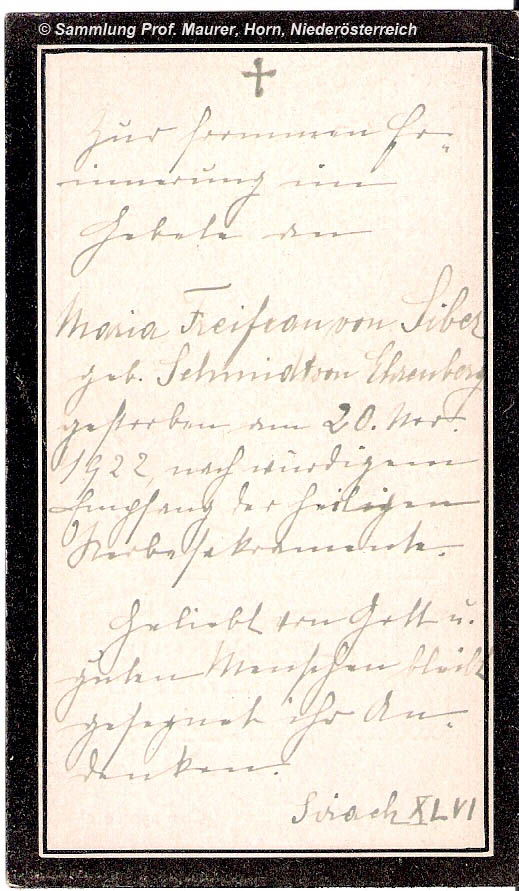 © Sammlung Prof. Maurer, Horn, Niederösterreich
Zur frommen Er-
innerung im
Gebete an
Maria Freifrau von Siber
geb. Schmidt von Ehrenberg
gestorben am 20. Nov.
1922, nach würdigem
Empfang der heiligen
Sterbesakramente.
Geliebt von Gott u.
guten Menschen bleibt
gesegnet ihr An-
denken.
Sirach XLVI